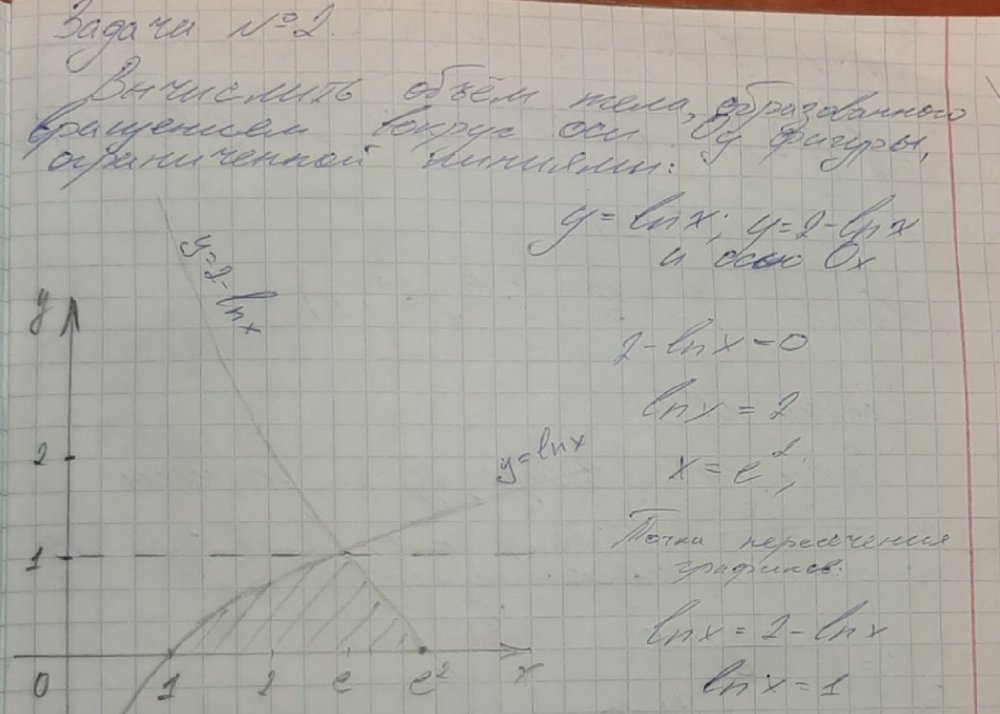 Задачи №2.
Вычислить объём тела, образованного
вращением вокруг оси Оу фигуры,
ограниченной линиями:
y = ln x; y = 2 - ln x
и осью Ох
y = 2 - ln x
y
2 - ln x = 0
ln x = 2
2
y = ln x
x = e²;
1
Точка пересечения
графиков:
ln x = 2 - ln x
0 1 2 e e² x
ln x = 1